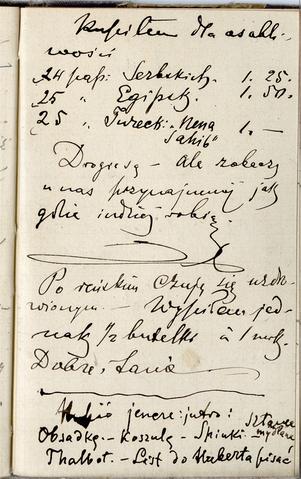 Kupiłem dla osobli-
wości
24 pap: Serbskich. 1. 25.
25 " Egipsk. 1. 50.
25 " Turecki: "Nena
Sahib" 1. —
Drogie są — ale zobaczę
u nas przynajmniej jak
gdzie indziej robią.
Po reńskim czuję się uzdro-
wionym. — Wypiłem jed-
nak 1/2 butelki à 1 mrk.
Dobre i tanie
Kupić jeszcze jutro:
Obsadkę. — Koszulę — Spinki —
Thalbot. — List do Huberta pisać